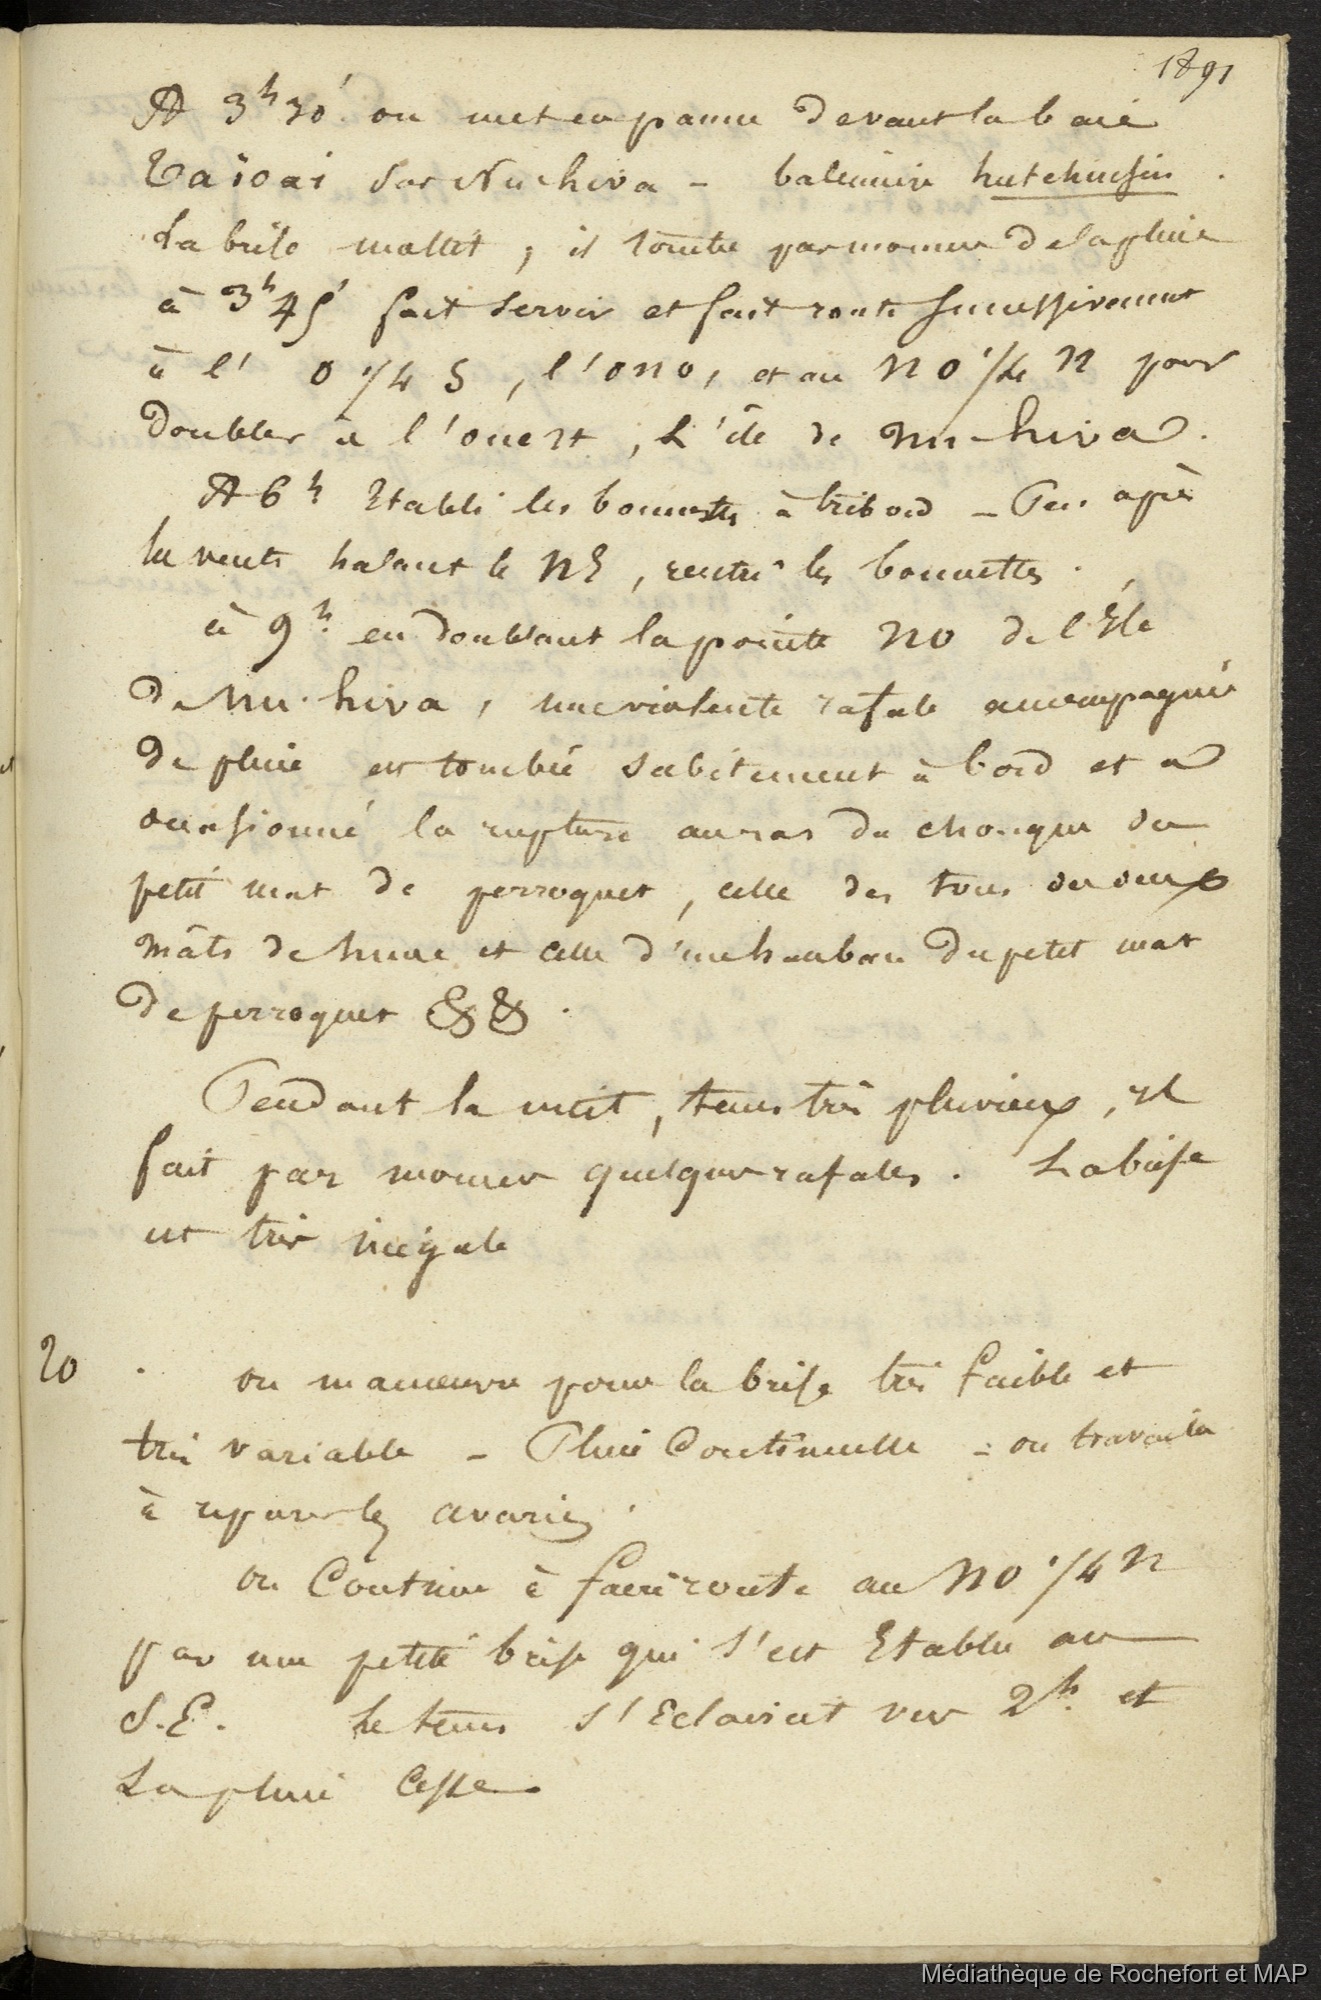 1891
A 3h 30' on met en panne devant la baie
Taïoaï sur Nu-hiva - baleinier hutchinson.
La brise mollit, il tombe par momens de la pluie
à 3h 45' fait servir et fait route successivement
à l' O 1/4 S, l'ONO, et au NO 1/4 N pour
doubler à l'ouest, L'île de Nu-hiva.
A 6h Etabli les bonnettes à tribord - Peu après
les vents halant le NE, rentré les bonnettes.
à 9h. en doublant la pointe NO de l'Ele
de Nu-hiva, une violente rafale accompagnée
de pluie est tombée subitement à bord et a
occasionné la rupture au ras du chouque du
petit mat de perroquet, celle des tons des deux
mâts de hune et celle d'un hauban du petit mat
de perroquet & &.
Pendant la nuit, tems très pluvieux, il
fait par momens quelques rafales. La brise
est très inégale
20
on manoeuvre pour la brise très faible et
très variable - Pluie Continuelle - on travaille
à réparer les avaries.
on Continue à faire route au NO 1/4 N
par une petite brise qui s'est Etablie au
S.E. Le tems s'Eclaircit vers 2h. et
La pluie Cesse.
Médiathèque de Rochefort et MAP